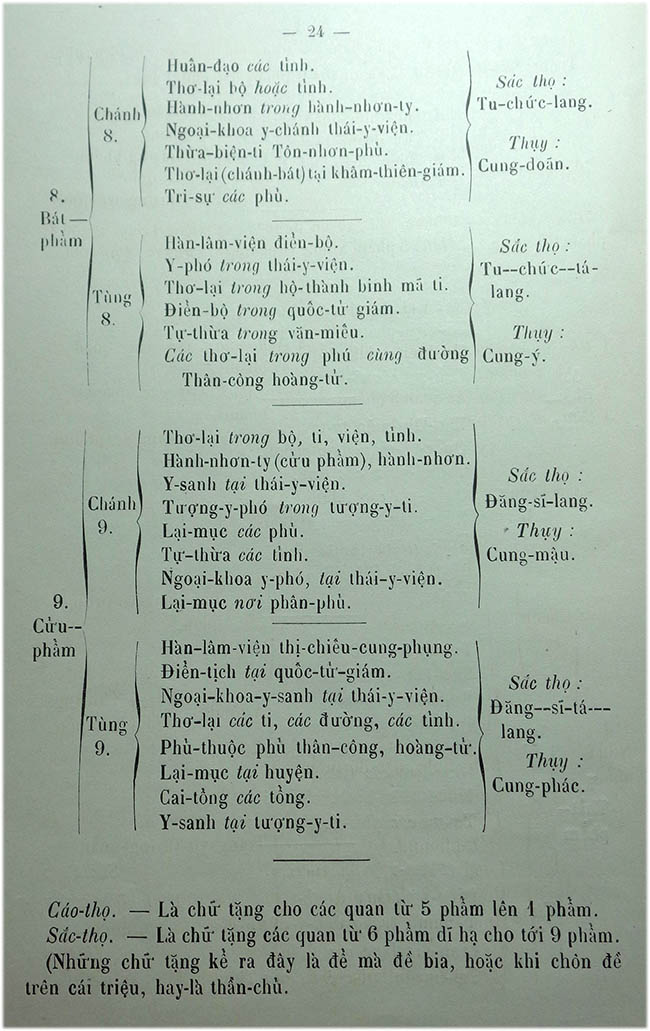 — 24 —
8.
Bát—
phẩm
Chánh
8.
Huân-đạo các tỉnh.
Thơ-lại bộ hoặc tỉnh.
Hành-nhơn trong hành-nhơn-ty.
Ngoại-khoa y-chánh thái-y-viện.
Thừa-biện-ti Tôn-nhơn-phủ.
Thơ-lại (chánh-bát) tại khâm-thiên-giám.
Tri-sự các phủ.
Sắc thọ :
Tu-chức-lang.
Thụy :
Cung-doãn.
Tùng
8.
Hàn-lâm-viện điển-bộ.
Y-phó trong thái-y-viện.
Thơ-lại trong hộ-thành binh mã ti.
Điển-bộ trong quốc-tử giám.
Tự-thừa trong văn-miếu.
Các thơ-lại trong phủ cùng đường
Thân-công hoàng-tử.
Sắc thọ :
Tu--chức--tá-
lang.
Thụy :
Cung-ý.
9.
Cửu--
phẩm
Chánh
9.
Thơ-lại trong bộ, ti, viện, tỉnh.
Hành-nhơn-ty (cửu phẩm), hành-nhơn.
Y-sanh tại thái-y-viện.
Tượng-y-phó trong tượng-y-ti.
Lại-mục các phủ.
Tự-thừa các tỉnh.
Ngoại-khoa y-phó, tại thái-y-viện.
Lại-mục nơi phân-phủ.
Sắc thọ :
Đăng-sĩ-lang.
Thụy :
Cung-mậu.
Tùng
9.
Hàn-lâm-viện thị-chiếu-cung-phụng.
Điển-tịch tại quốc-tử-giám.
Ngoại-khoa-y-sanh tại thái-y-viện.
Thơ-lại các ti, các đường, các tỉnh.
Phủ-thuộc phủ thân-công, hoàng-tử.
Lại-mục tại huyện.
Cai-tổng các tổng.
Y-sanh tại tượng-y-ti.
Sắc thọ :
Đăng--sĩ-tá---
lang.
Thụy :
Cung-phác.
Cáo-thọ. — Là chữ tặng cho các quan từ 5 phẩm lên 1 phẩm.
Sắc-thọ. — Là chữ tặng các quan từ 6 phẩm dĩ hạ cho tới 9 phẩm.
(Những chữ tặng kể ra đây là để mà đề bia, hoặc khi chôn đề
trên cái triệu, hay-là thần-chủ.